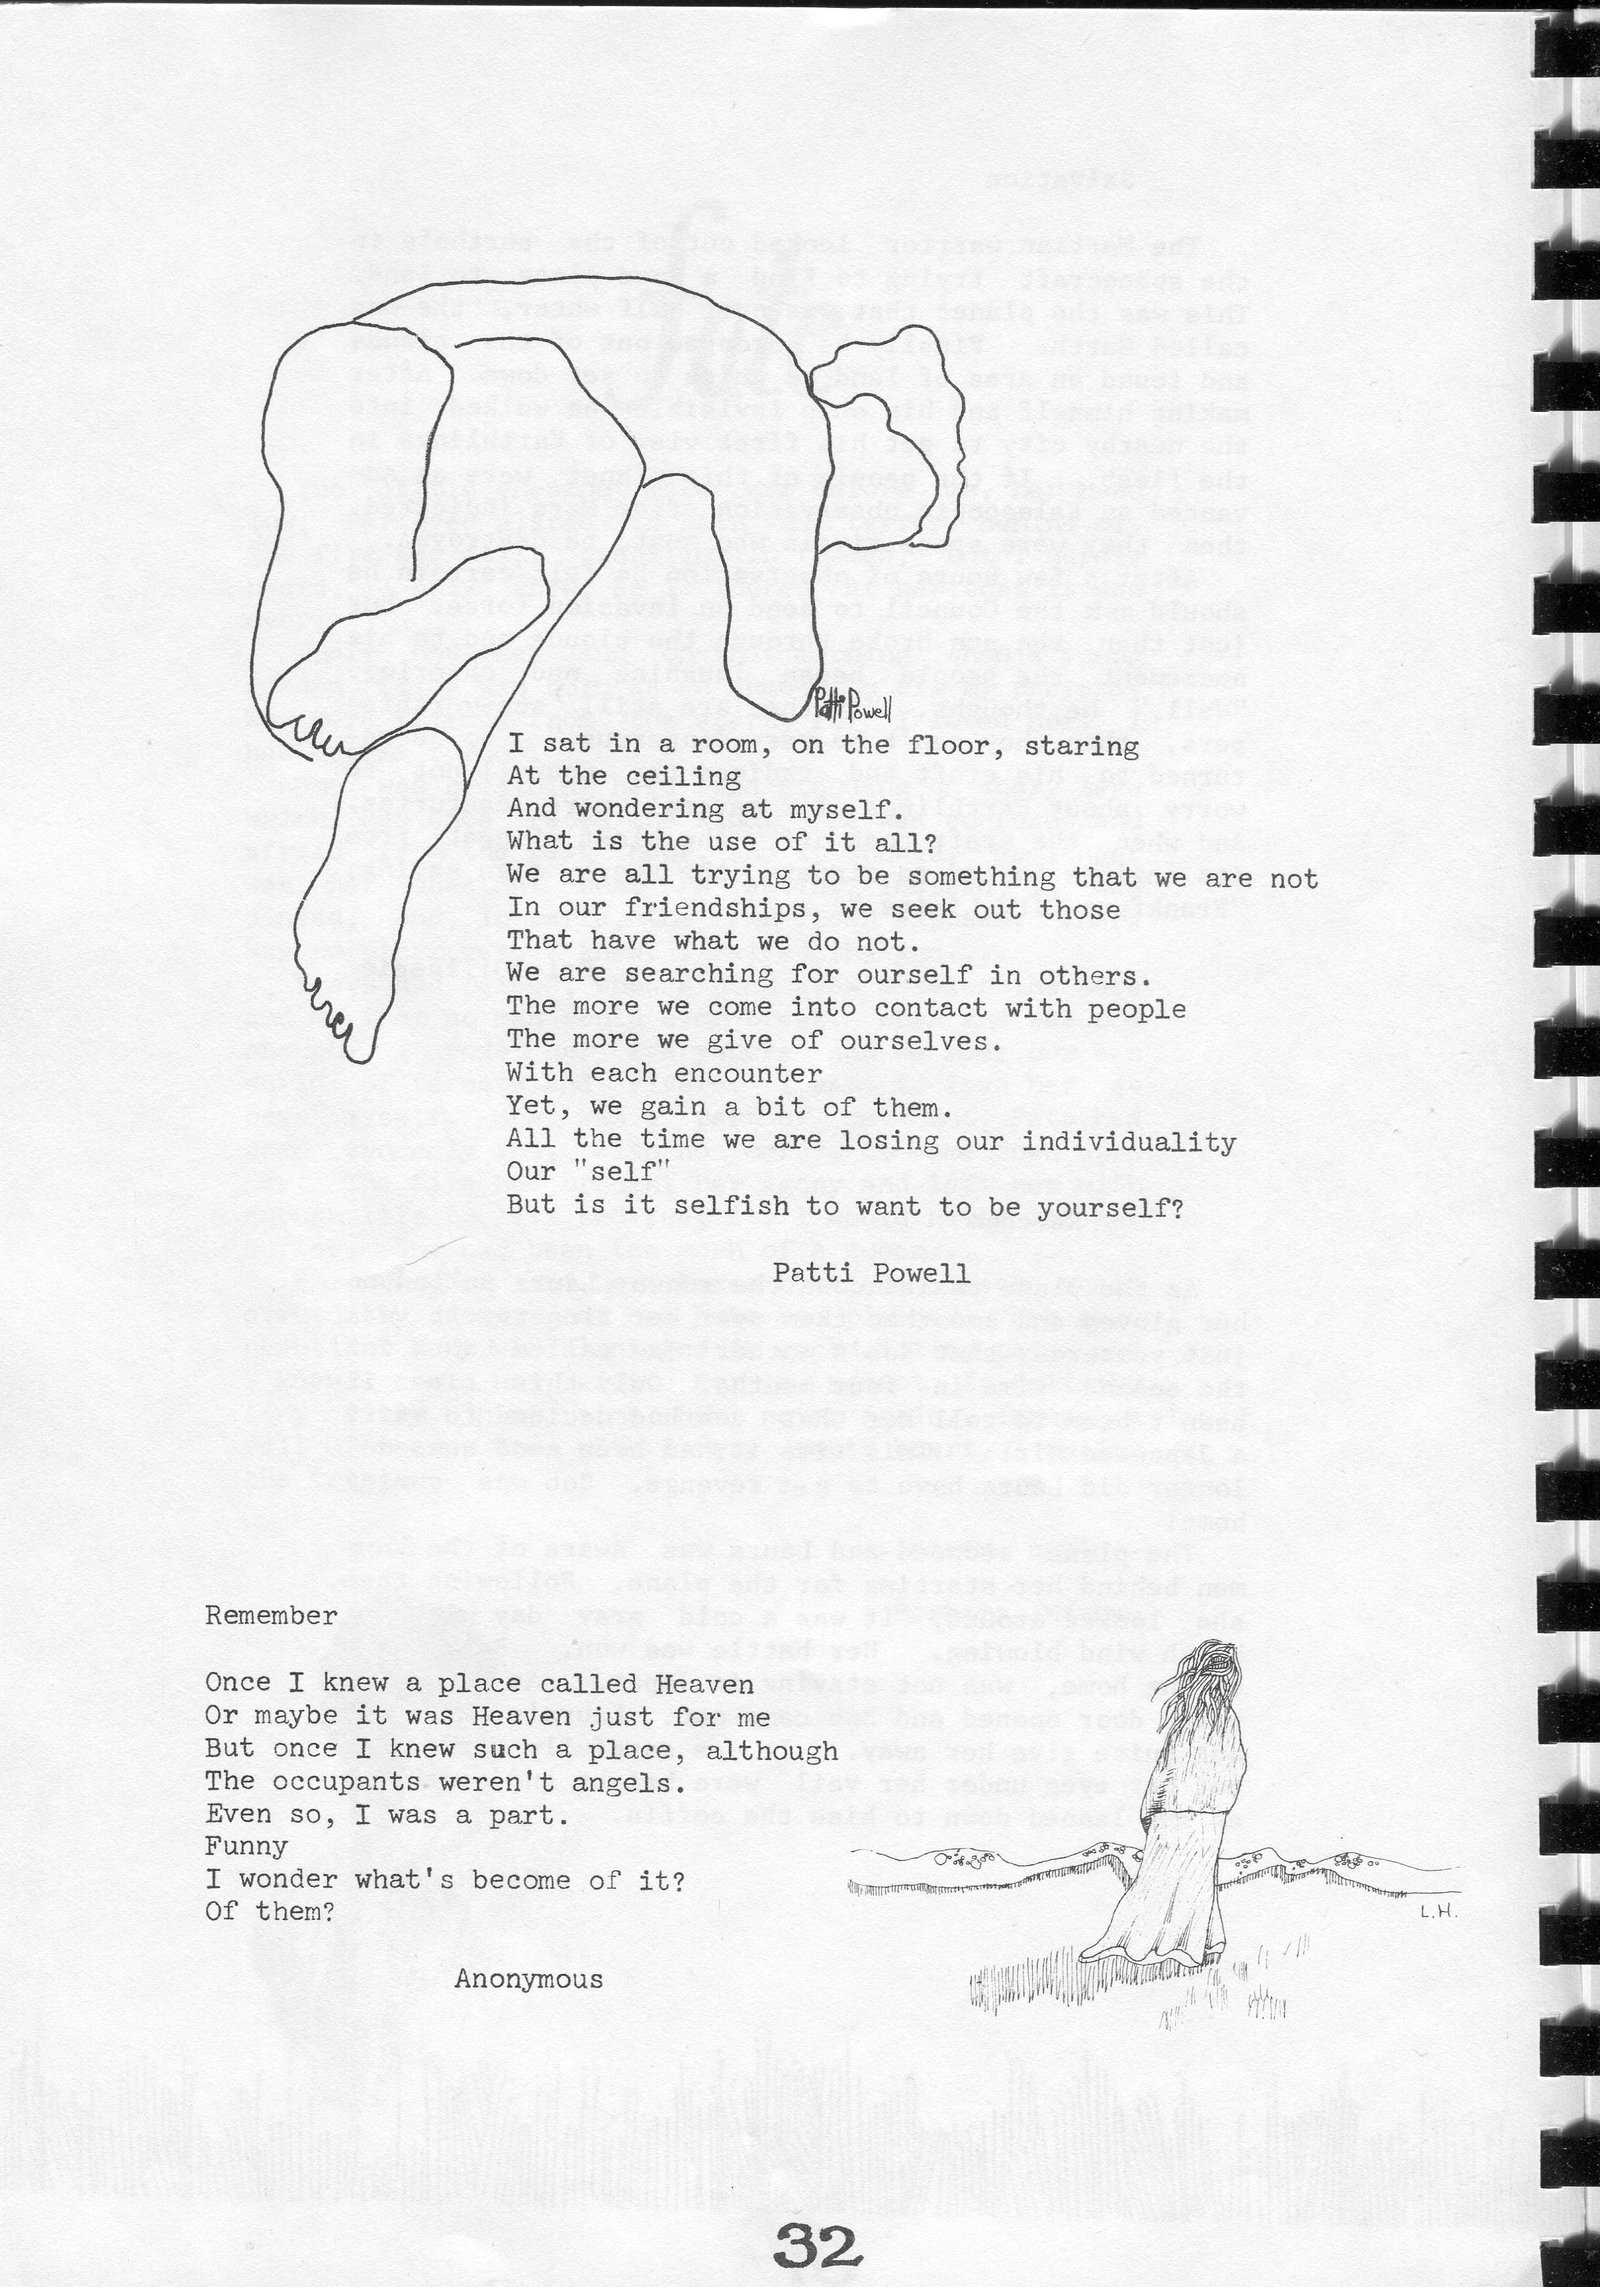 Patti Powell
I sat in a room, on the floor, staring
At the ceiling
And wondering at myself.
What is the use of it all?
We are all trying to be something that we are not
In our friendships, we seek out those
That have what we do not.
We are searching for ourself in others.
The more we come into contact with people
The more we give of ourselves.
With each encounter
Yet, we gain a bit of them.
All the time we are losing our individuality
Our "self"
But is it selfish to want to be yourself?
Patti Powell
Remember
Once I knew a place called Heaven
Or maybe it was Heaven just for me
But once I knew such a place, although
The occupants weren't angels.
Even so, I was a part.
Funny
I wonder what's become of it?
Of them?
L.H.
Anonymous
32